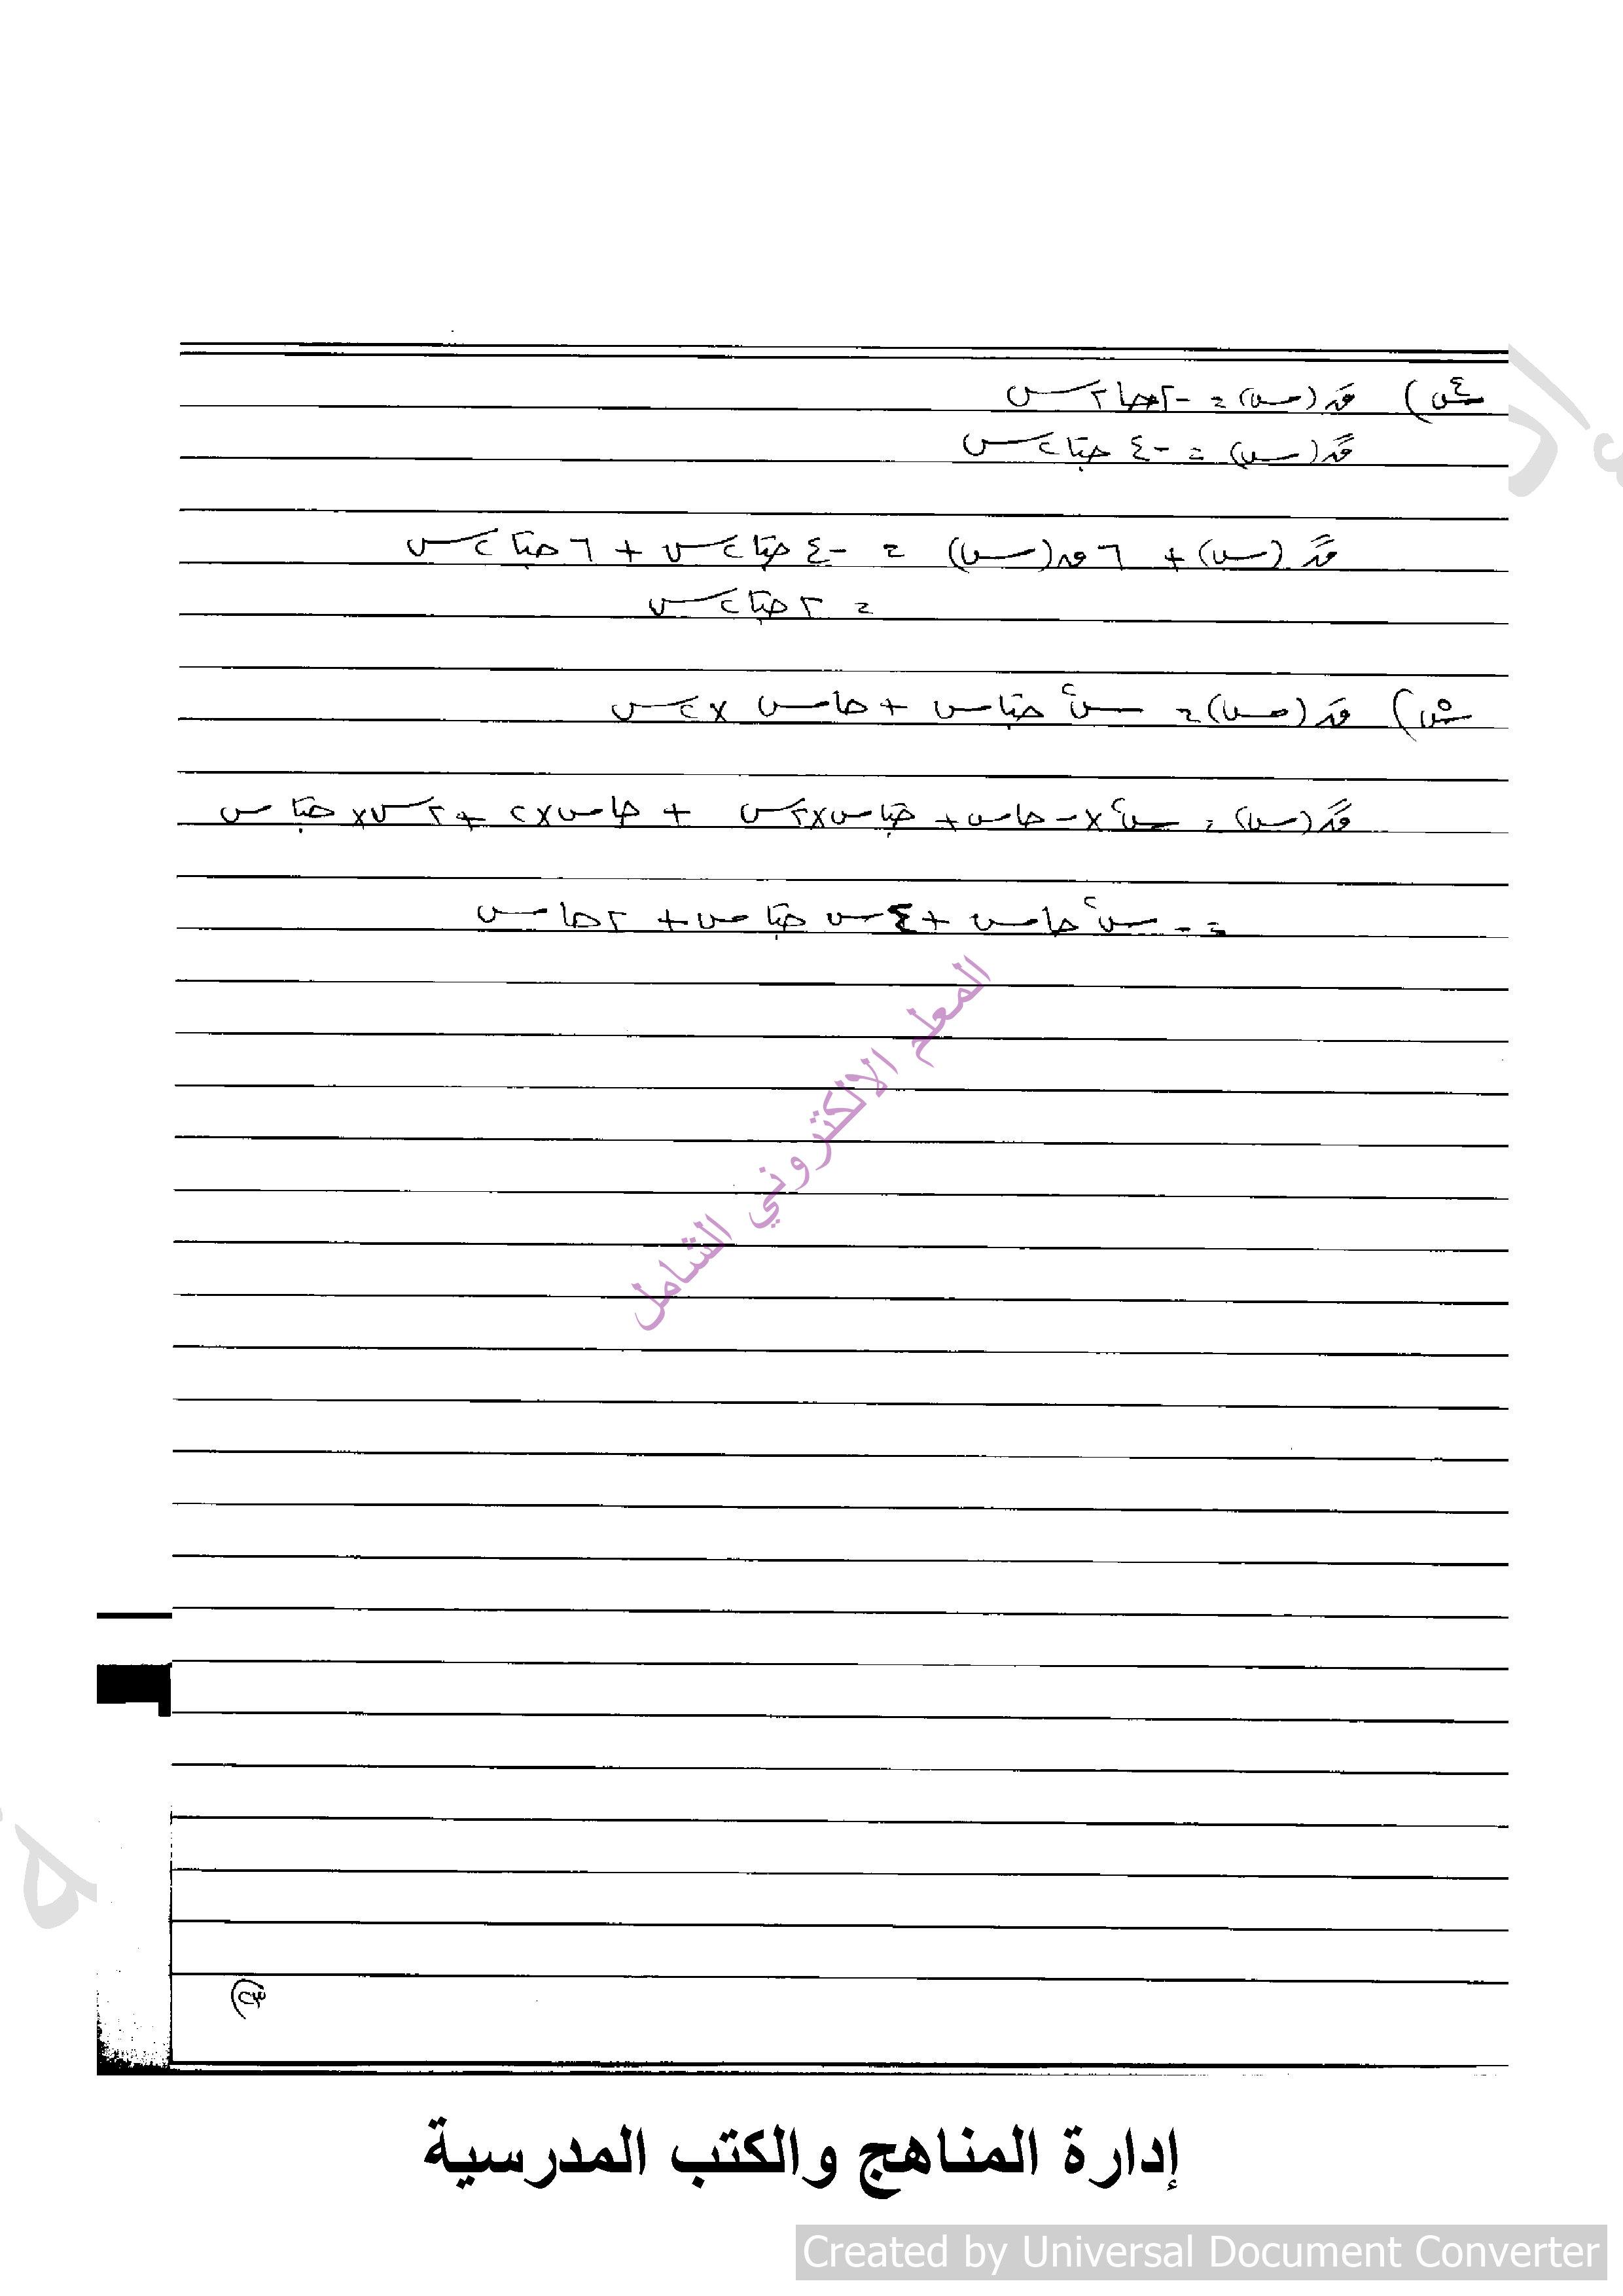 س٤) قَ(س) = -٢جا٢س
قً(س) = -٤ جتا٢س
قً(س) + ٦ق(س) = -٤ جتا٢س + ٦ جتا٢س
= ٢ جتا٢س
س٥) قَ(س) = س² جتاس + جاس × ٢س
قً(س) = س² × -جاس + جتاس×٢س + جاس×٢ + ٢س× جتاس
= -س² جاس + ٤س جتاس + ٢جاس
المعلم الالكتروني الشامل
إدارة المناهج والكتب المدرسية
Created by Universal Document Converter